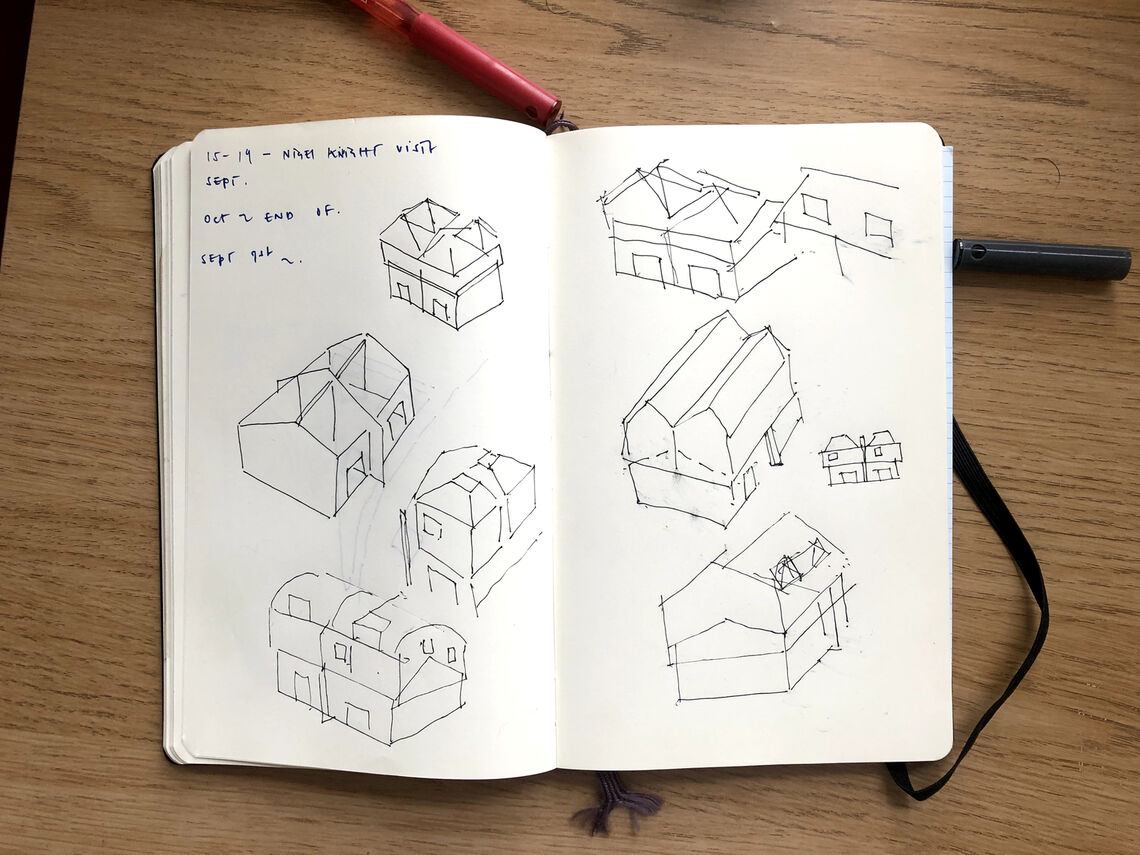 15-19 - NIGEL KNIGHT VISIT
SEPT.
OCT ~ END OF.
SEPT 9st ~.